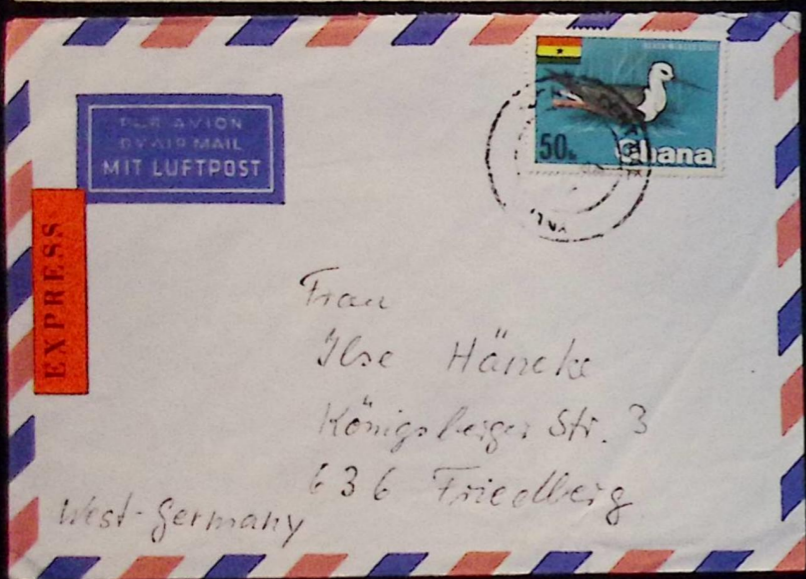 PAR AVION
BY AIR MAIL
MIT LUFTPOST
EXPRESS
50
Ghana
Frau
Ilse Häncke
Königsberger Str. 3
636 Friedberg
West-Germany